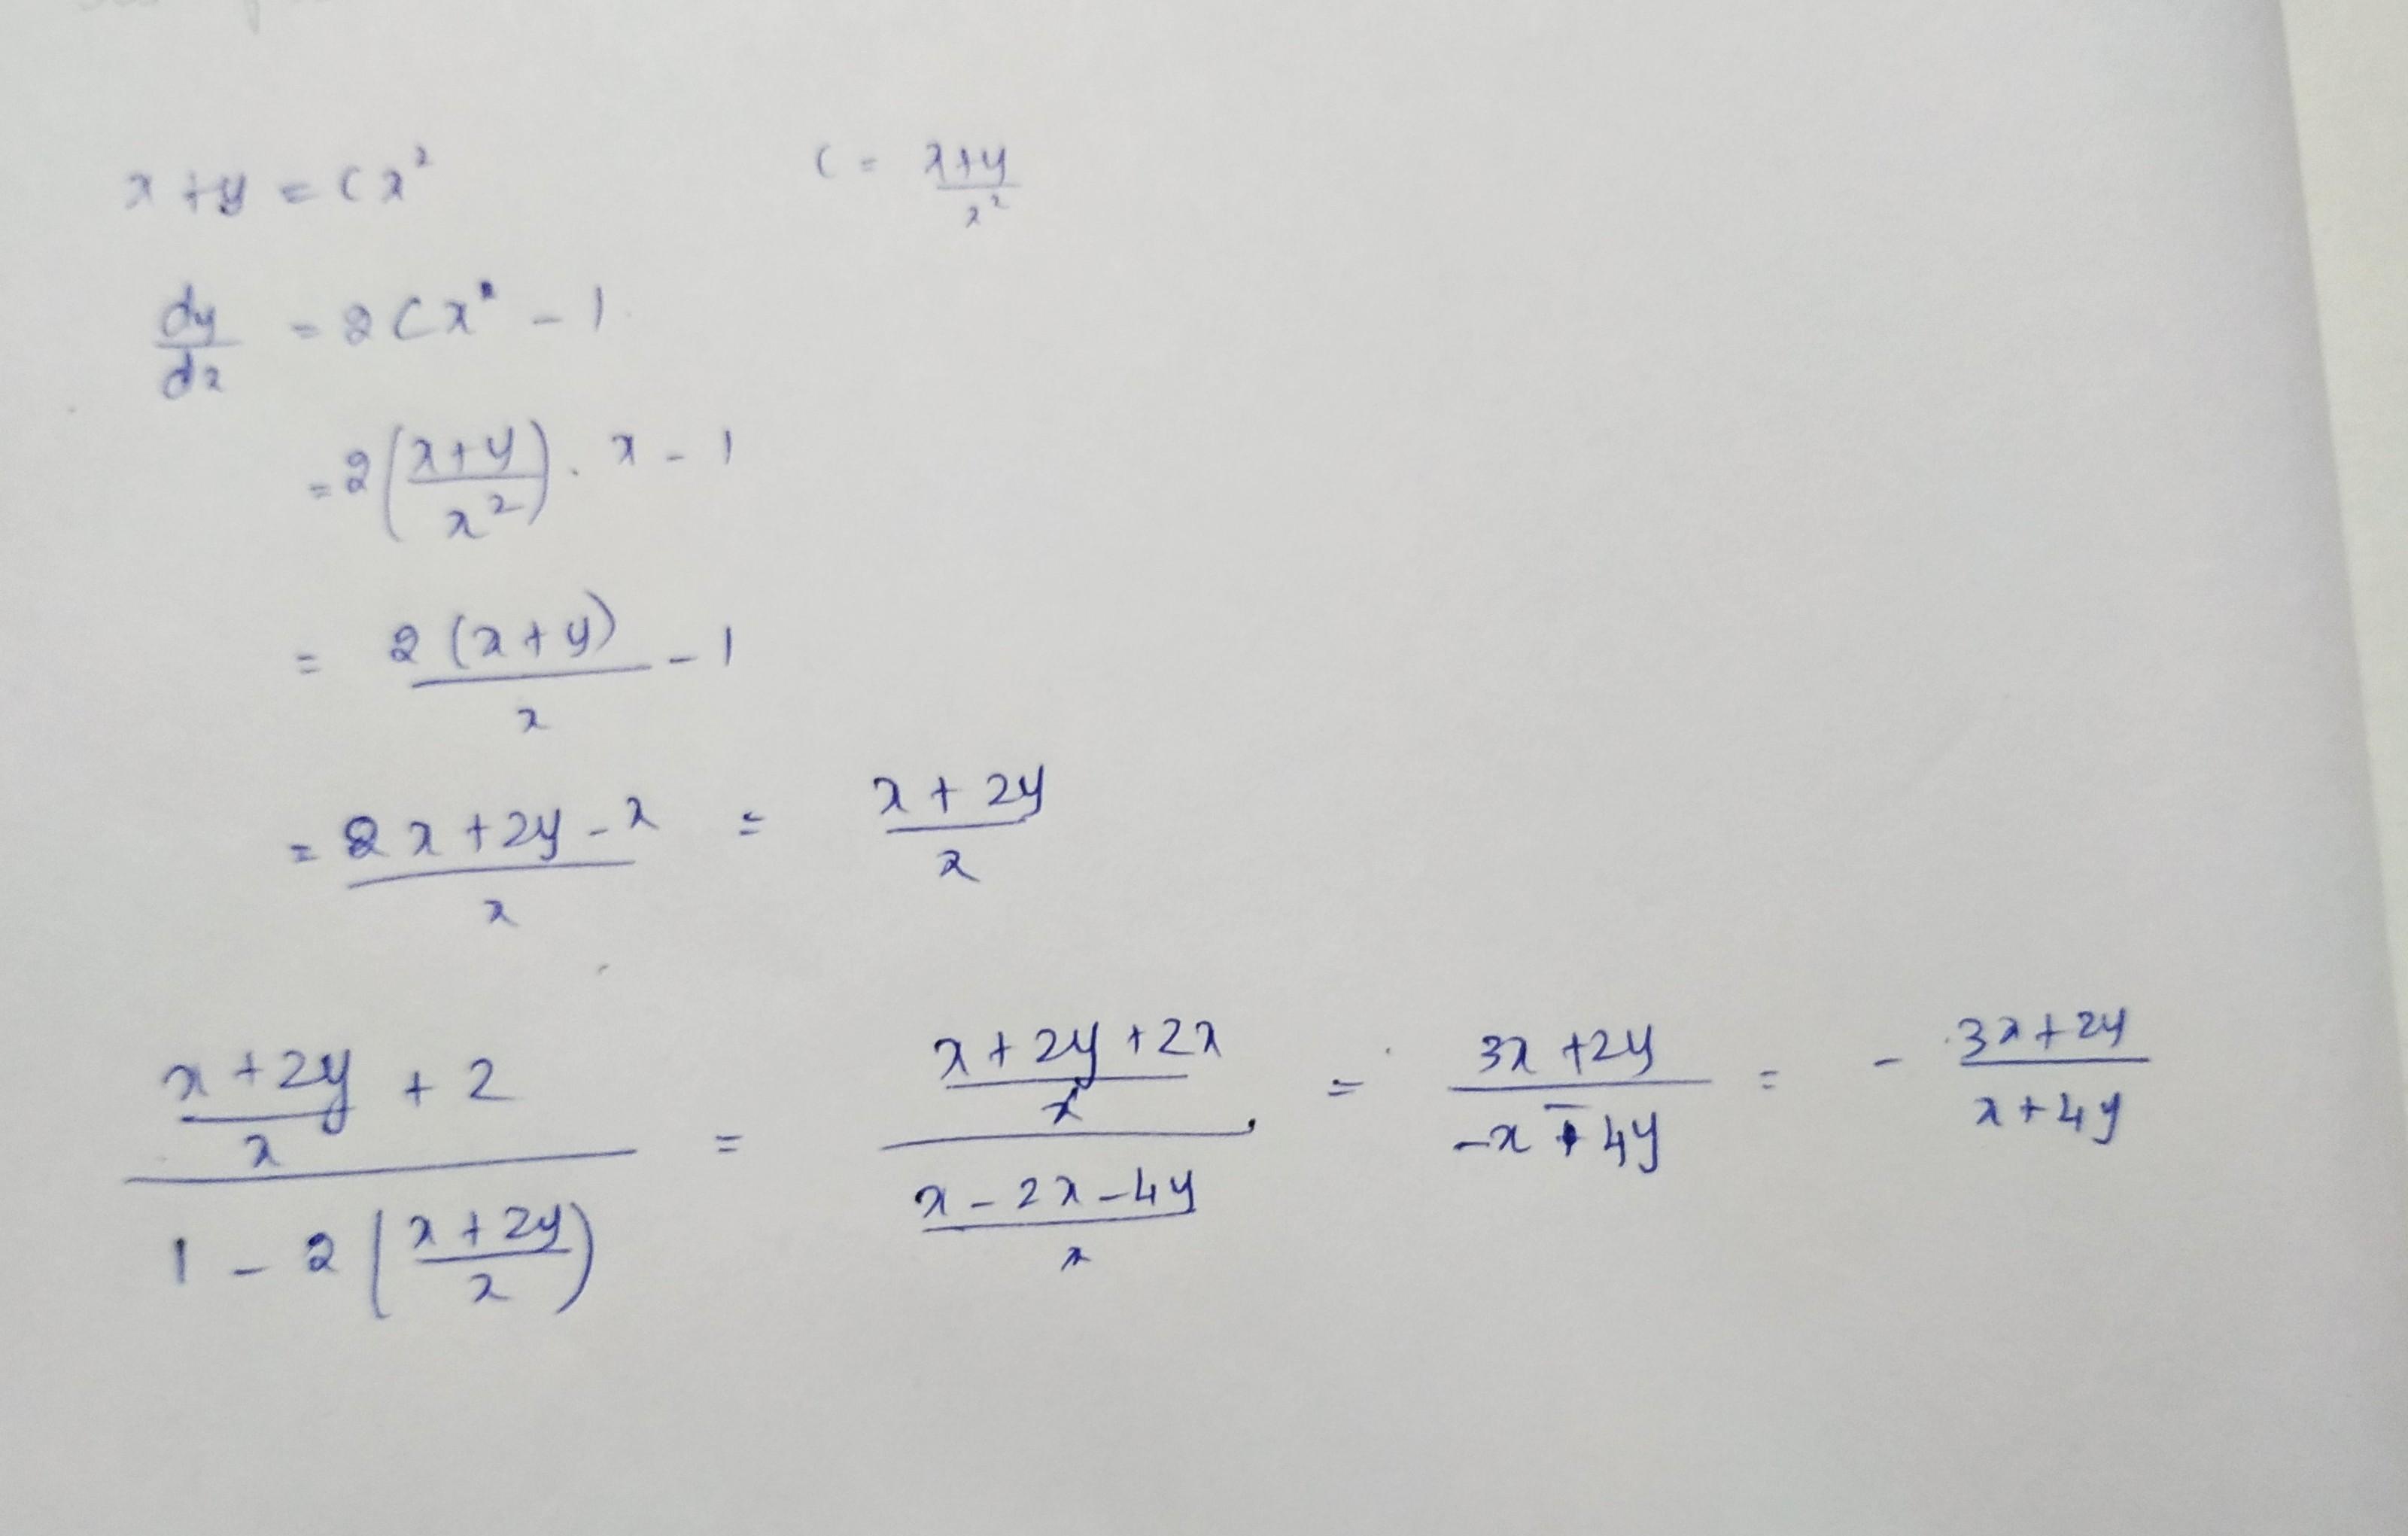 x + y = Cx²    C = (x+y)/x²
dy/dx = 2Cx - 1
= 2((x+y)/x²) . x - 1
= 2(x+y)/x - 1
= (2x + 2y - x)/x = (x + 2y)/x
((x+2y)/x + 2)/(1 - 2((x+2y)/x)) = ((x+2y+2x)/x)/((x-2x-4y)/x) = (3x+2y)/(-x-4y) = - (3x+2y)/(x+4y)